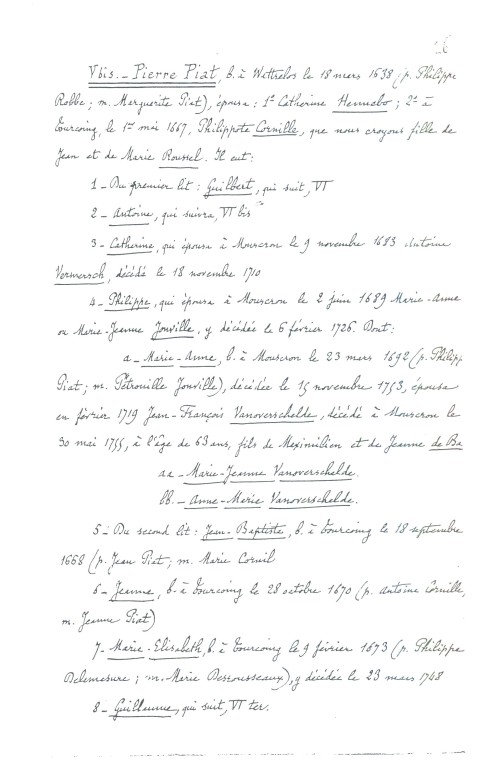 26
Vbis. - Pierre Piat, b. à Wattrelos le 18 mars 1638 (p. Philippe
Robbe ; m. Marguerite Piat), épousa : 1° Catherine Hennebo ; 2° à
Tourcoing, le 1er mai 1667, Philippote Cornille, que nous croyons fille de
Jean et de Marie Roussel. Il eut :
1 - Du premier lit : Guilbert, qui suit, VI
2 - Antoine, qui suivra, VI bis
3 - Catherine, qui épousa à Mouscron le 9 novembre 1683 Antoine
Vermersch, décédé le 18 novembre 1710
4 - Philippe, qui épousa à Mouscron le 2 juin 1689 Marie-Anne
ou Marie-Jeanne Jonville, y décédée le 6 février 1726. Dont :
a - Marie-Anne, b. à Mouscron le 23 mars 1692 (p. Philipp
Piat ; m. Pétronille Jonville), décédée le 15 novembre 1753, épousa
en février 1719 Jean-François Vanoverschelde, décédé à Mouscron le
30 mai 1755, à l'âge de 63 ans, fils de Maximilien et de Jeanne de Ba
aa - Marie-Jeanne Vanoverschelde.
bb. - Anne-Marie Vanoverschelde.
5 - Du second lit : Jean-Baptiste, b. à Tourcoing le 18 septembre
1668 (p. Jean Piat ; m. Marie Cornil
6 - Jeanne, b. à Tourcoing le 28 octobre 1670 (p. Antoine Cornille,
m. Jeanne Piat)
7 - Marie-Elisabeth, b. à Tourcoing le 9 février 1673 (p. Philippe
Delemasure ; m. Marie Desrousseaux), y décédée le 23 mars 1748
8 - Guillaume, qui suit, VI ter.